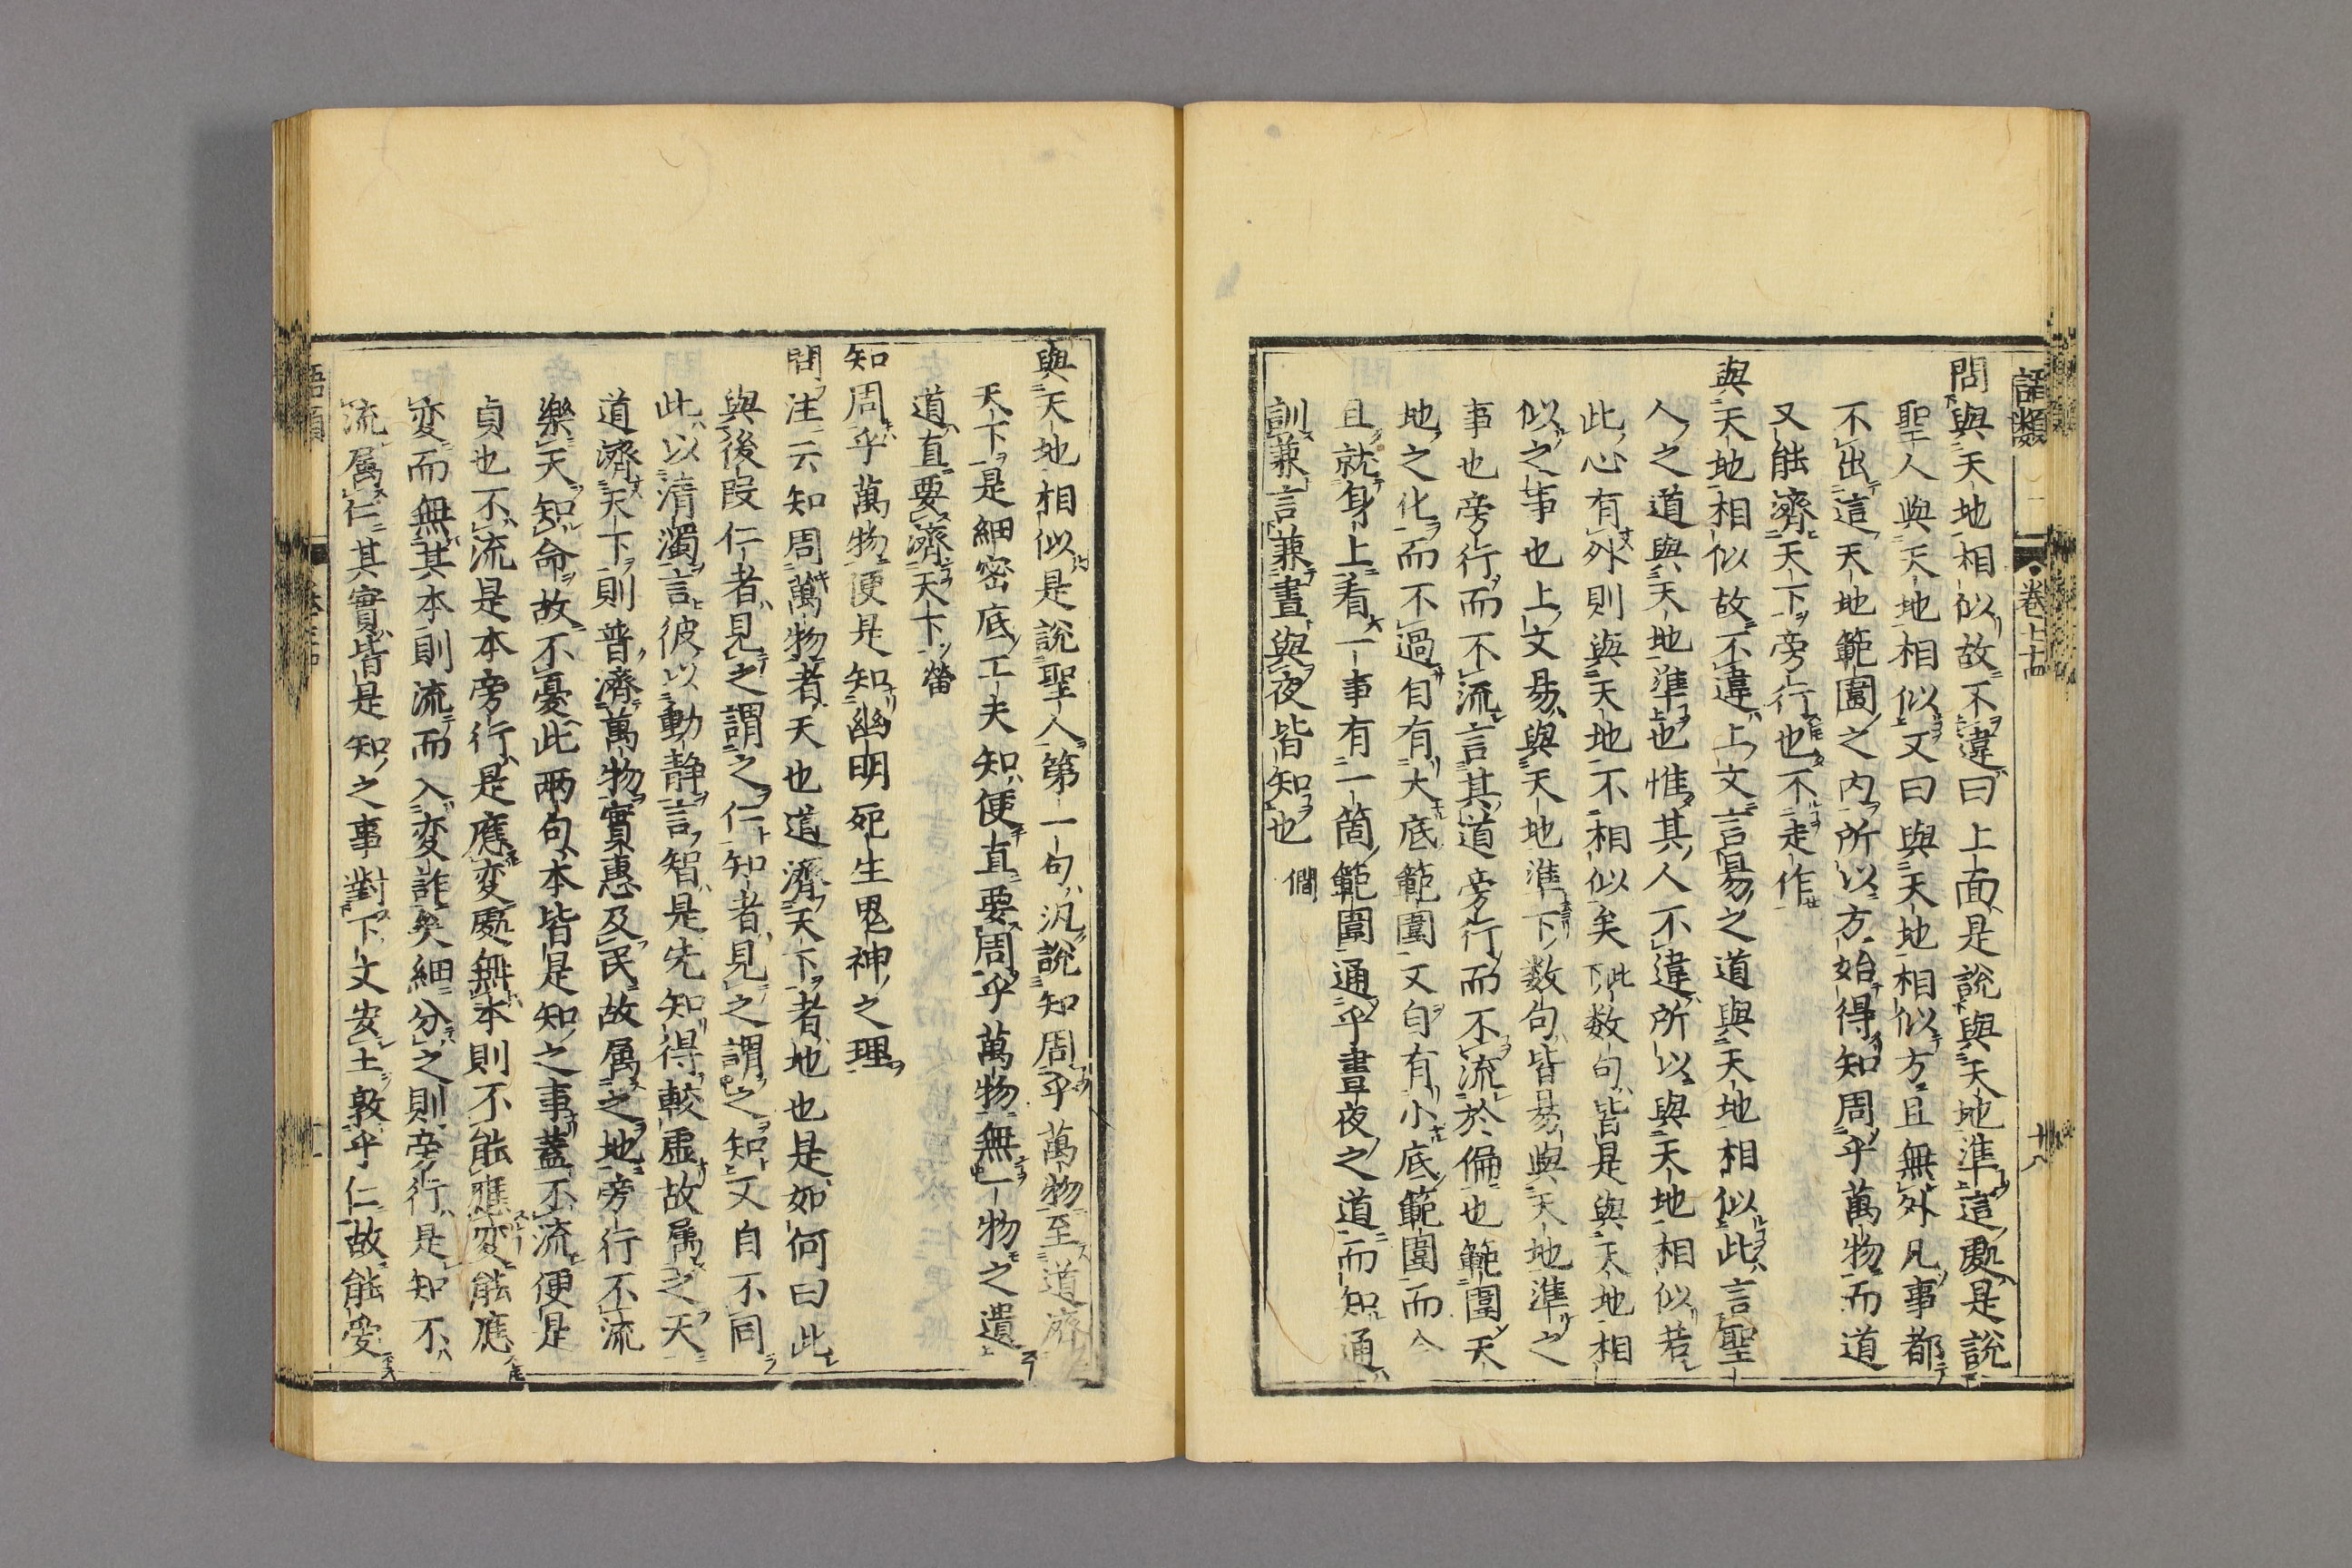 語類
卷七十四
十八
問與天地相似故不違曰上面是說與天地準這處是說
聖人與天地相似又曰與天地相似方且無外凡事都
不出這天地範圍之內所以方始得知周乎萬物而道
又能濟天下旁行也不走作
與天地相似故不違上文言易之道與天地相似此言聖
人之道與天地準也惟其人不違所以與天地相似若
此心有外則與天地不相似矣此下數句皆是與天地相
似之事也上文易與天地準下数句皆易與天地準之
事也旁行而不流言其道旁行而不流於偏也範圍天
地之化而不過自有大底範圍又自有小底範圍而今
且就身上看一事有一箇範圍通乎晝夜之道而知通
訓兼言兼晝與夜皆知也 僩
與天地相似是說聖人第一句汎說知周乎萬物至道濟
天下是細密底工夫知便直要周乎萬物無一物之遺
道直要濟天下 㽦
知周乎萬物便是知幽明死生鬼神之理
問注云知周萬物者天也道濟天下者地也是如何曰此
與後段仁者見之謂之仁知者見之謂之知又自不同
此以清濁言彼以動静言智是先知得較虚故属之天
道濟天下則普濟萬物實惠及民故属之地旁行不流
樂天知命故不憂此两句本皆是知之事蓋不流便是
貞也不流是本旁行是應変處無本則不能應変能應
変而無其本則流而入変詐矣細分之則旁行是知不
流属仁其實皆是知之事對下文安土敦乎仁故能愛
語類